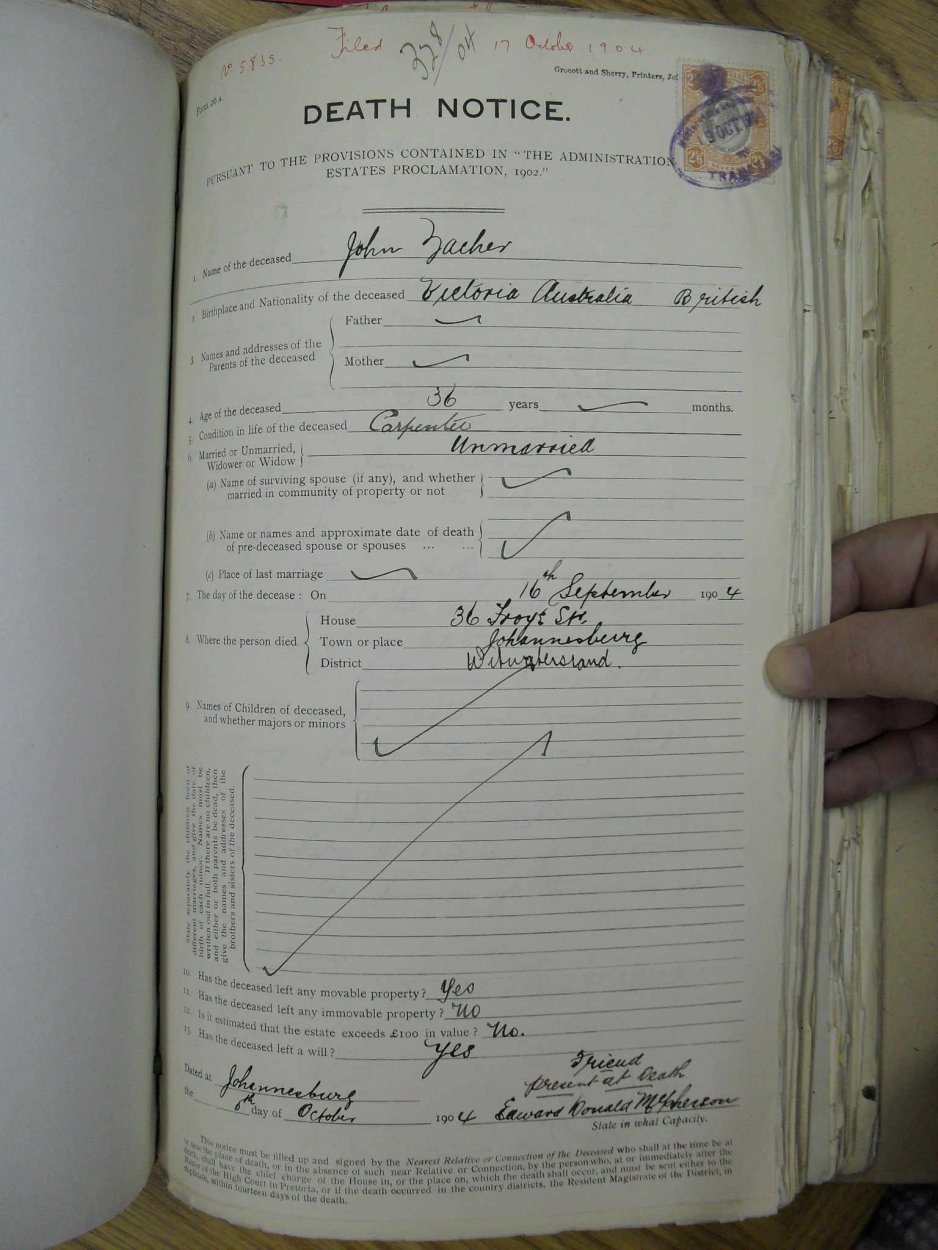 No 5935. Filed 17 October 1904
Form 20 A. Grocott and Sherry, Printers,
DEATH NOTICE.
PURSUANT TO THE PROVISIONS CONTAINED IN "THE ADMINISTRATION
ESTATES PROCLAMATION, 1902."
1. Name of the deceased John Zacher
2. Birthplace and Nationality of the deceased Victoria Australia British
3. Names and addresses of the
Parents of the deceased
Father
Mother
4. Age of the deceased 36 years months.
5. Condition in life of the deceased Carpenter
6. Married or Unmarried,
Widower or Widow
Unmarried
(a) Name of surviving spouse (if any), and whether
married in community of property or not
(b) Name or names and approximate date of death
of pre-deceased spouse or spouses ... ...
(c) Place of last marriage
7. The day of the decease : On 16th September 1904
8. Where the person died
House 36 St.
Town or place Johannesburg
District Witwatersrand.
9. Names of Children of deceased,
and whether majors or minors
State separately the children born of
different marriages, and give the date of
birth of each minor. Names must be
written out in full. If there are no children,
and either or both parents be dead, then
give the names and addresses of the
brothers and sisters of the deceased.
10. Has the deceased left any movable property? Yes
11. Has the deceased left any immovable property? No
12. Is it estimated that the estate exceeds £100 in value? No.
13. Has the deceased left a will? Yes
Friend
present at Death
Dated at Johannesburg
the 8th day of October 1904 Edward Donald McPherson
State in what Capacity.
This notice must be filled up and signed by the Nearest Relative or Connection of the Deceased who shall at the time be at
or near the place of death, or in the absence of such near Relative or Connection, by the person who, at or immediately after the
death, shall have the chief charge of the House in, or the place on, which the death shall occur, and must be sent either to the
Master of the High Court in Pretoria, or if the death occurred in the country districts, the Resident Magistrate of the District, in
duplicate, within fourteen days of the death.